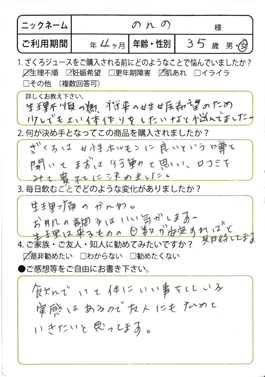 ニックネーム のんの 様
ご利用期間 年 4ヶ月 年齢・性別 35歳 男・女
1.ざくろジュースをご購入される前にどのようなことで悩んでいましたか?
☑生理不順 ☑妊娠希望 □更年期障害 ☑肌あれ □イライラ
□その他 (複数回答可)
詳しくお教え下さい。
生理不順の為、将来の妊娠希望のため
少しでもよい体作りをしたいなと悩んでました。
2.何が決め手となってこの商品を購入されましたか?
ざくろは女性ホルモンに良いという噂を
聞いてまずは行動かと思い、口コミを
みて貴社に決めました。
3.毎日飲むことでどのような変化がありましたか?
生理痛のかんわ。
お肌の調子はいい気がします。
生理は来るものの日数が安定すればと期待してます
4.ご家族・ご友人・知人に勧めてみたいですか?
☑是非勧めたい □わからない □勧めたくない
●ご感想等をご自由にお書き下さい。
飲んでいて体にいい事をしている
実感はあるので友人にもすすめて
いきたいと思ってます。